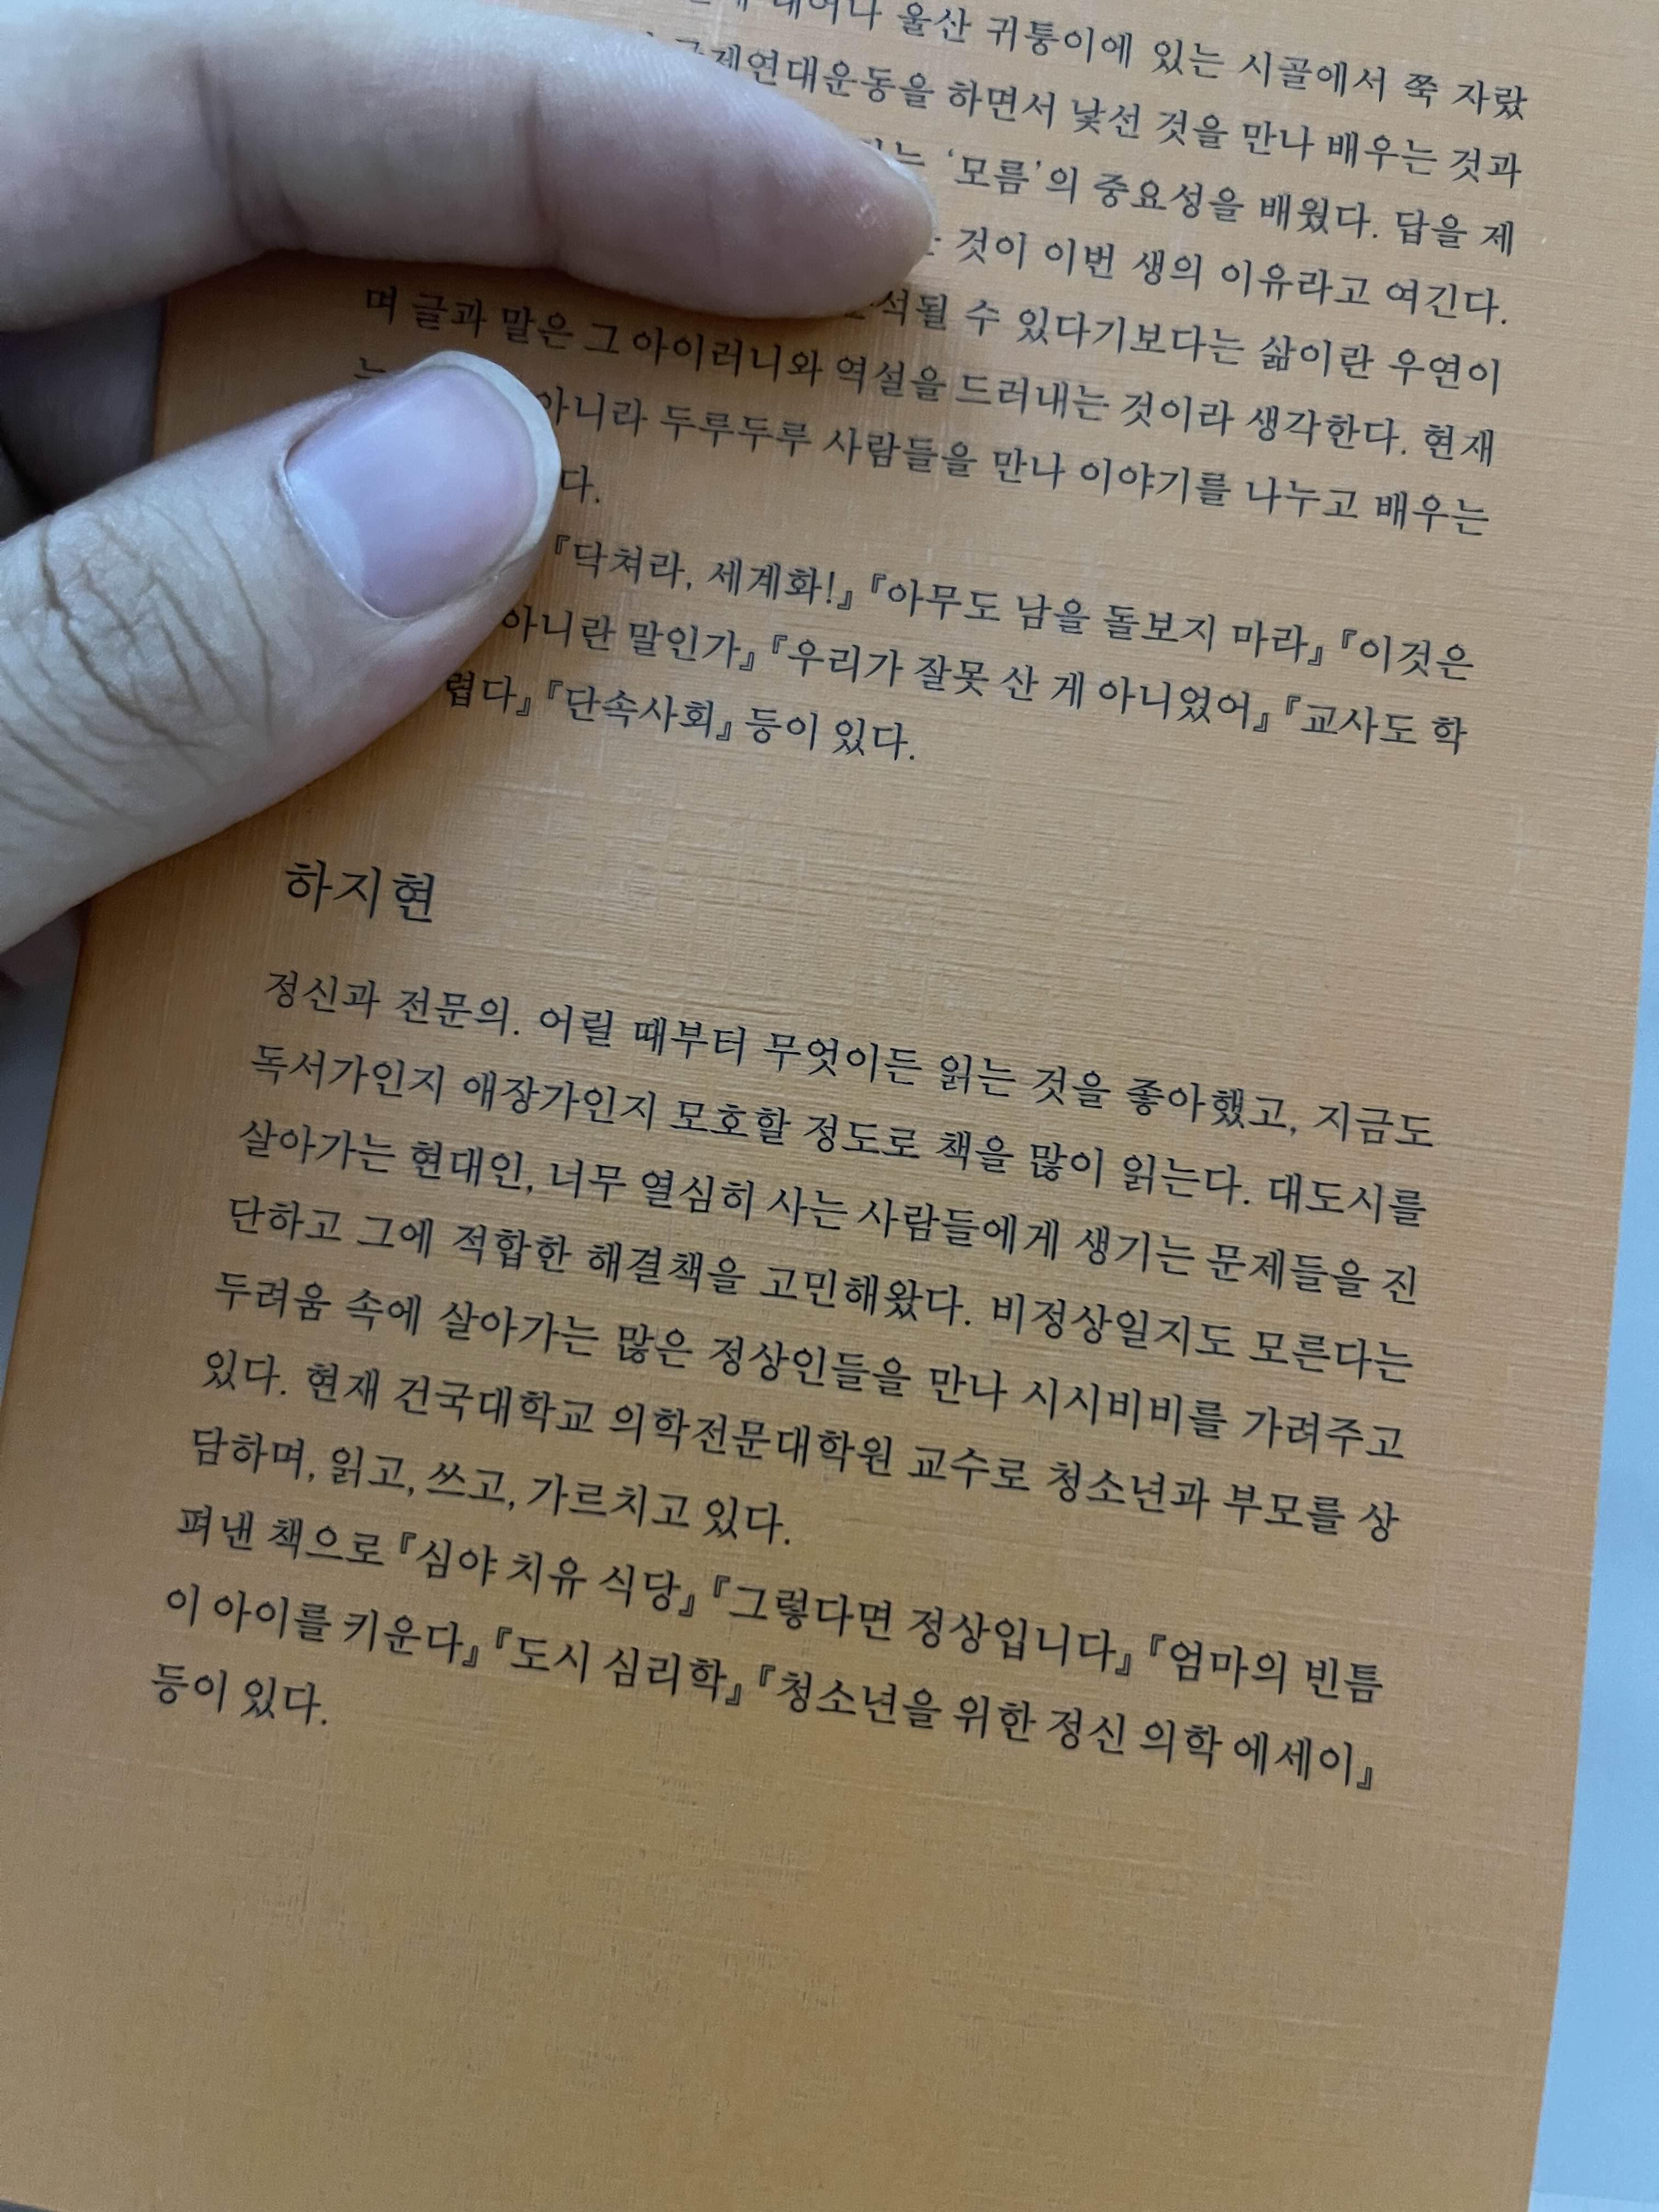 울산 귀퉁이에 있는 시골에서 쭉 자랐
하면서 낯선 것을 만나 배우는 것과
'모름'의 중요성을 배웠다. 답을 제
것이 이번 생의 이유라고 여긴다.
수 있다기보다는 삶이란 우연이
며 글과 말은 그 아이러니와 역설을 드러내는 것이라 생각한다. 현재
아니라 두루두루 사람들을 만나 이야기를 나누고 배우는
다.
『닥쳐라, 세계화!』 『아무도 남을 돌보지 마라』 『이것은
아니란 말인가』 『우리가 잘못 산 게 아니었어』 『교사도 학
렵다』 『단속사회』 등이 있다.
하지현
정신과 전문의. 어릴 때부터 무엇이든 읽는 것을 좋아했고, 지금도
독서가인지 애장가인지 모호할 정도로 책을 많이 읽는다. 대도시를
살아가는 현대인, 너무 열심히 사는 사람들에게 생기는 문제들을 진
단하고 그에 적합한 해결책을 고민해왔다. 비정상일지도 모른다는
두려움 속에 살아가는 많은 정상인들을 만나 시시비비를 가려주고
있다. 현재 건국대학교 의학전문대학원 교수로 청소년과 부모를 상
담하며, 읽고, 쓰고, 가르치고 있다.
펴낸 책으로 『심야 치유 식당』 『그렇다면 정상입니다』 『엄마의 빈틈
이 아이를 키운다』 『도시 심리학』 『청소년을 위한 정신 의학 에세이』
등이 있다.